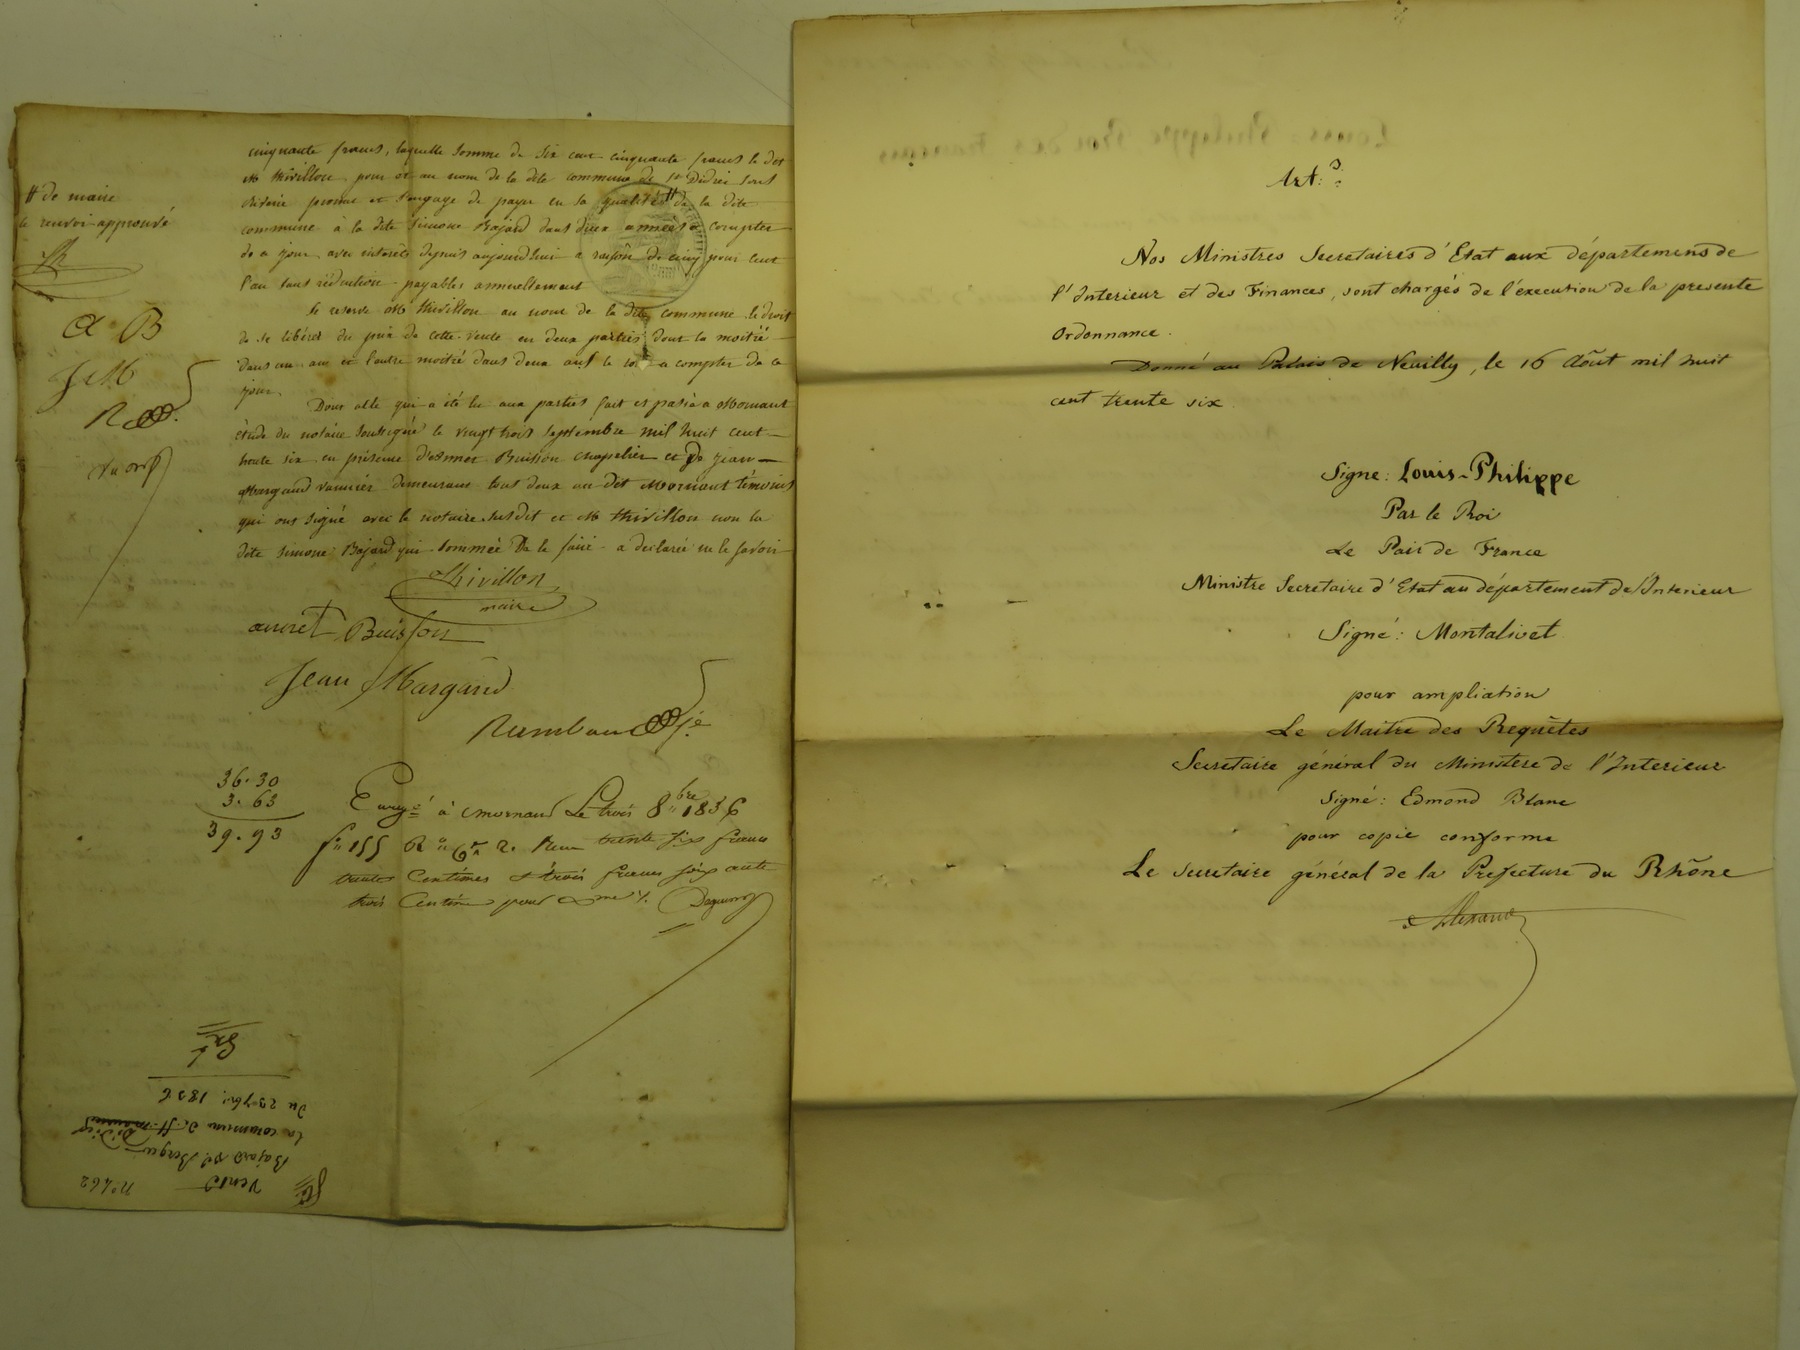 cinquante francs, laquelle somme de six cent cinquante francs le dit
M Thivillon pour et au nom de la dite commune de St Didier sous
riverie promet et s'engage de payer en sa qualité # de la dite
commune à la dite Simone Bajard dans deux années a compter
de ce jour avec intérêts depuis aujourdhui a raison de cinq pour cent
l'an sans réduction payables annuellement
se reserve M Thivillon au nom de la dite commune le droit
de se libérer du prix de cette vente en deux parties dont la moitié
dans un an et l'autre moitié dans deux ans le tout a compter de ce
jour.
Dont acte qui a été lu aux parties fait et passé a Mornant
étude du notaire soussigné le vingt trois septembre mil huit cent
trente six en présence d'Ennet Buisson chapelier et de Jean
Margand vannier demeurant tous deux au dit Mornant témoins
qui ont signé avec le notaire susdit et M Thivillon non la
dite Simone Bajard qui sommée de le faire a déclaré ne le savoir
# de maire
le renvoi approuvé
B
JM
Thivillon
maire
Buisson
Jean Margand
36.30
3.63
39.93
Enregé à Mornant Le trois 8bre 1836
fo 155 Ro Cse 2. Reçu trente six francs
trente Centimes & trois francs soixante
trois Centimes pour Dme
No 462
Vente
Bajard Ve Berger à
la commune de St maurice Didier
Du 23 7bre 1836
Art: 3
Nos Ministres Secretaires d'Etat aux départemens de
l'Interieur et des Finances, sont chargés de l'execution de la presente
Ordonnance.
Donné au Palais de Neuilly, le 16 Août mil huit
cent trente six
Signe: Louis-Philippe
Par le Roi
Le Pair de France
Ministre Secretaire d'Etat au département de l'Interieur
Signé: Montalivet
pour ampliation
Le Maître des Requêtes
Secretaire général du Ministere de l'Interieur
Signé: Edmond Blanc
pour copie conforme
Le Secretaire général de la Prefecture du Rhône